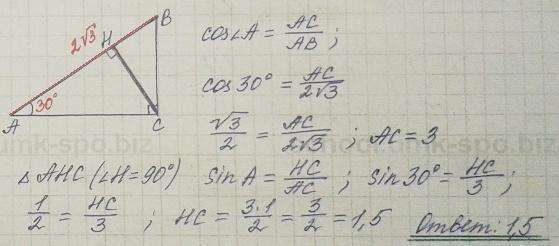 B
2√3
H
30°
A
C
cos∠A = AC/AB ;
cos 30° = AC/2√3
√3/2 = AC/2√3 ; AC = 3
△ AHC (∠H = 90°) sin A = HC/AC ; sin 30° = HC/3 ;
1/2 = HC/3 ; HC = 3·1/2 = 3/2 = 1,5 Ответ: 1,5